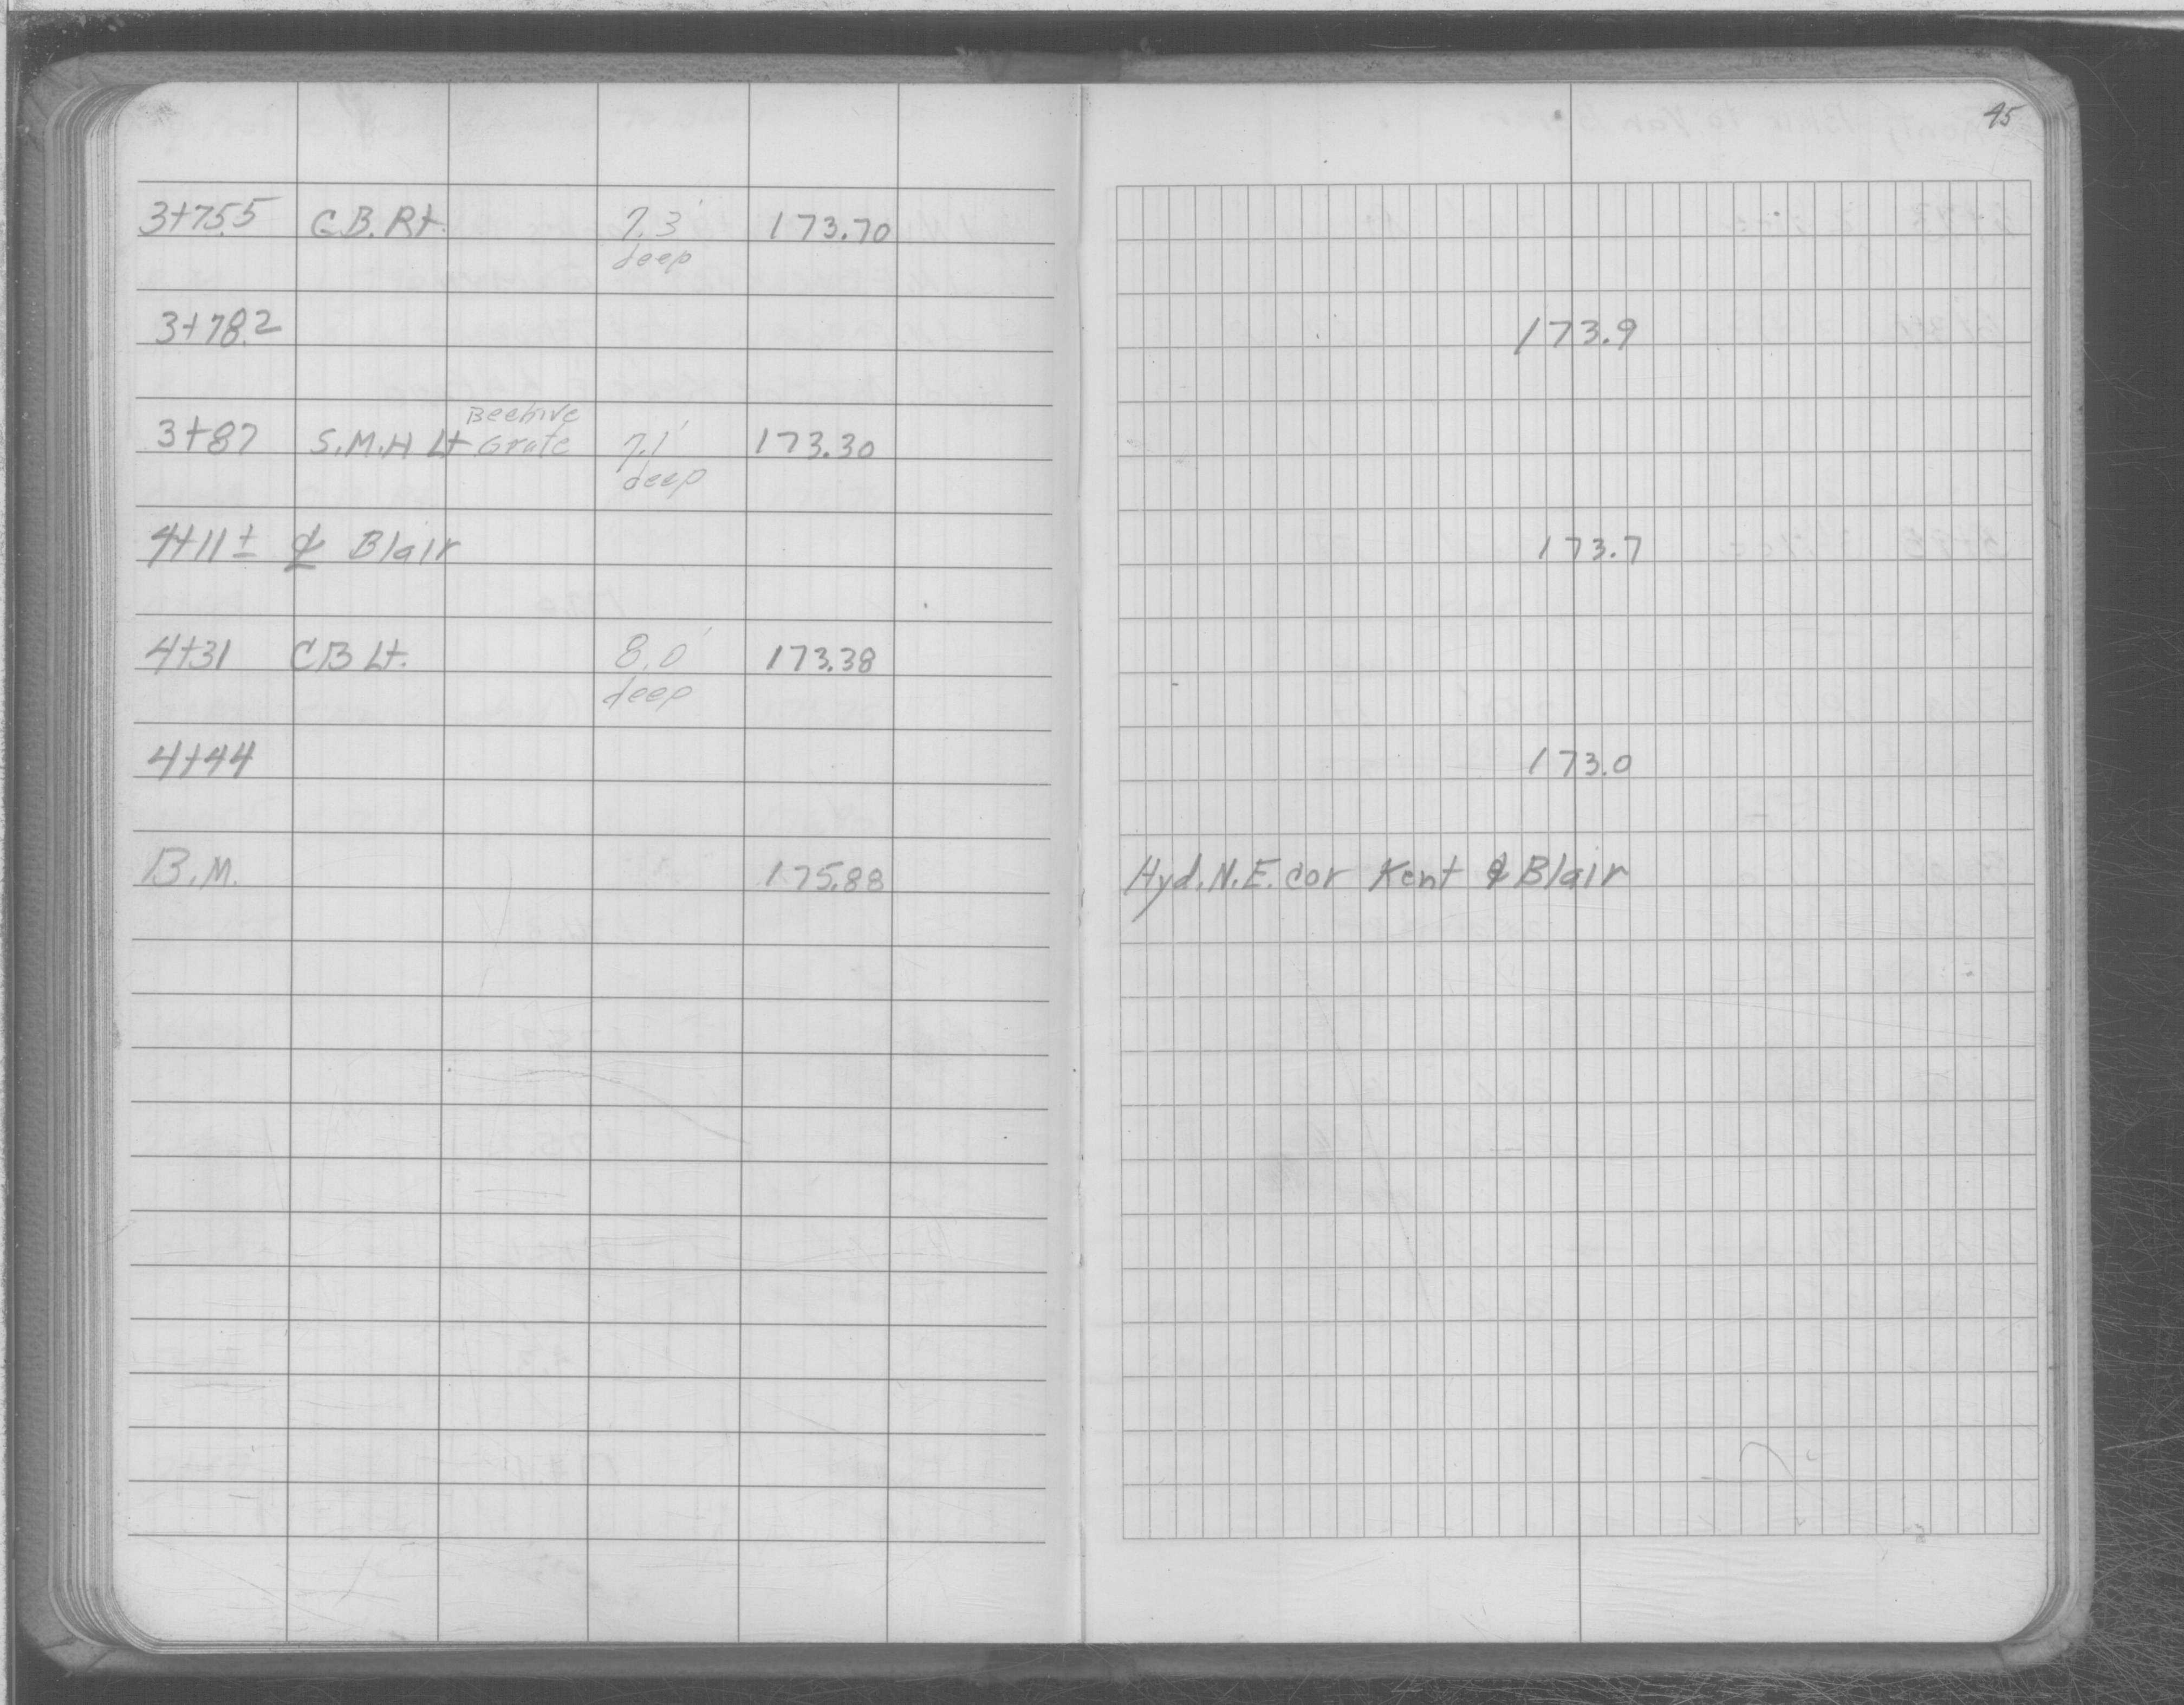 45
3+75.5 C.B. Rt. 7.3' 173.70
deep
3+78.2 173.9
Beehive
3+87 S.M.H Lt Grate 7.1' 173.30
deep
4+11± ℄ Blair 173.7
4+31 CB Lt. 8.0' 173.38
deep
4+44 173.0
B.M. 175.88 Hyd. N.E. cor Kent & Blair